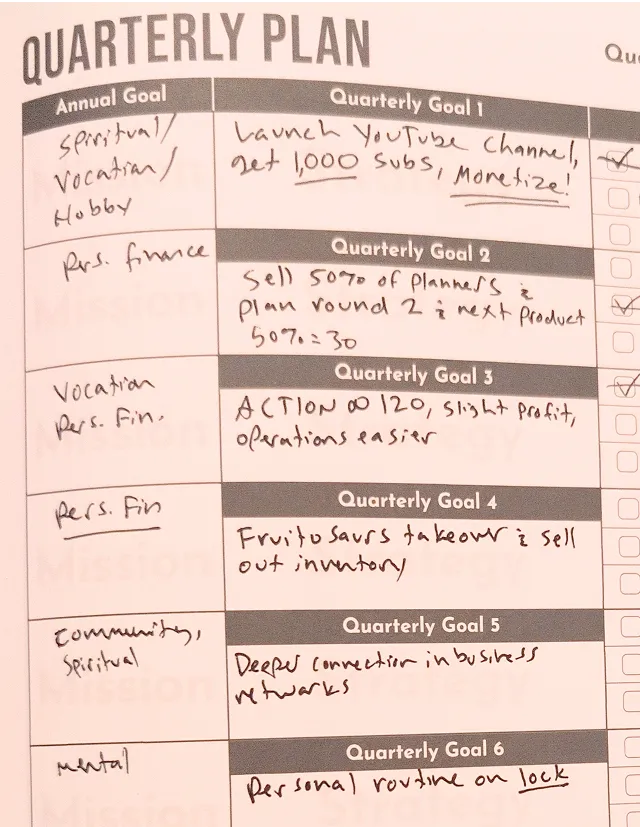 QUARTERLY PLAN
Qu
Annual Goal
Quarterly Goal 1
Spiritual/
Vocation/
Hobby
Launch YouTube Channel,
get 1,000 subs, Monetize!
Pers. finance
Quarterly Goal 2
Sell 50% of planners &
plan round 2 & next product
50% = 30
Vocation
Pers. Fin.
Quarterly Goal 3
ACTION ∞ 120, slight profit,
operations easier
Pers. Fin
Quarterly Goal 4
Fruitosaurs takeover & sell
out inventory
Community,
Spiritual
Quarterly Goal 5
Deeper connection in business
networks
Mental
Quarterly Goal 6
Personal routine on lock